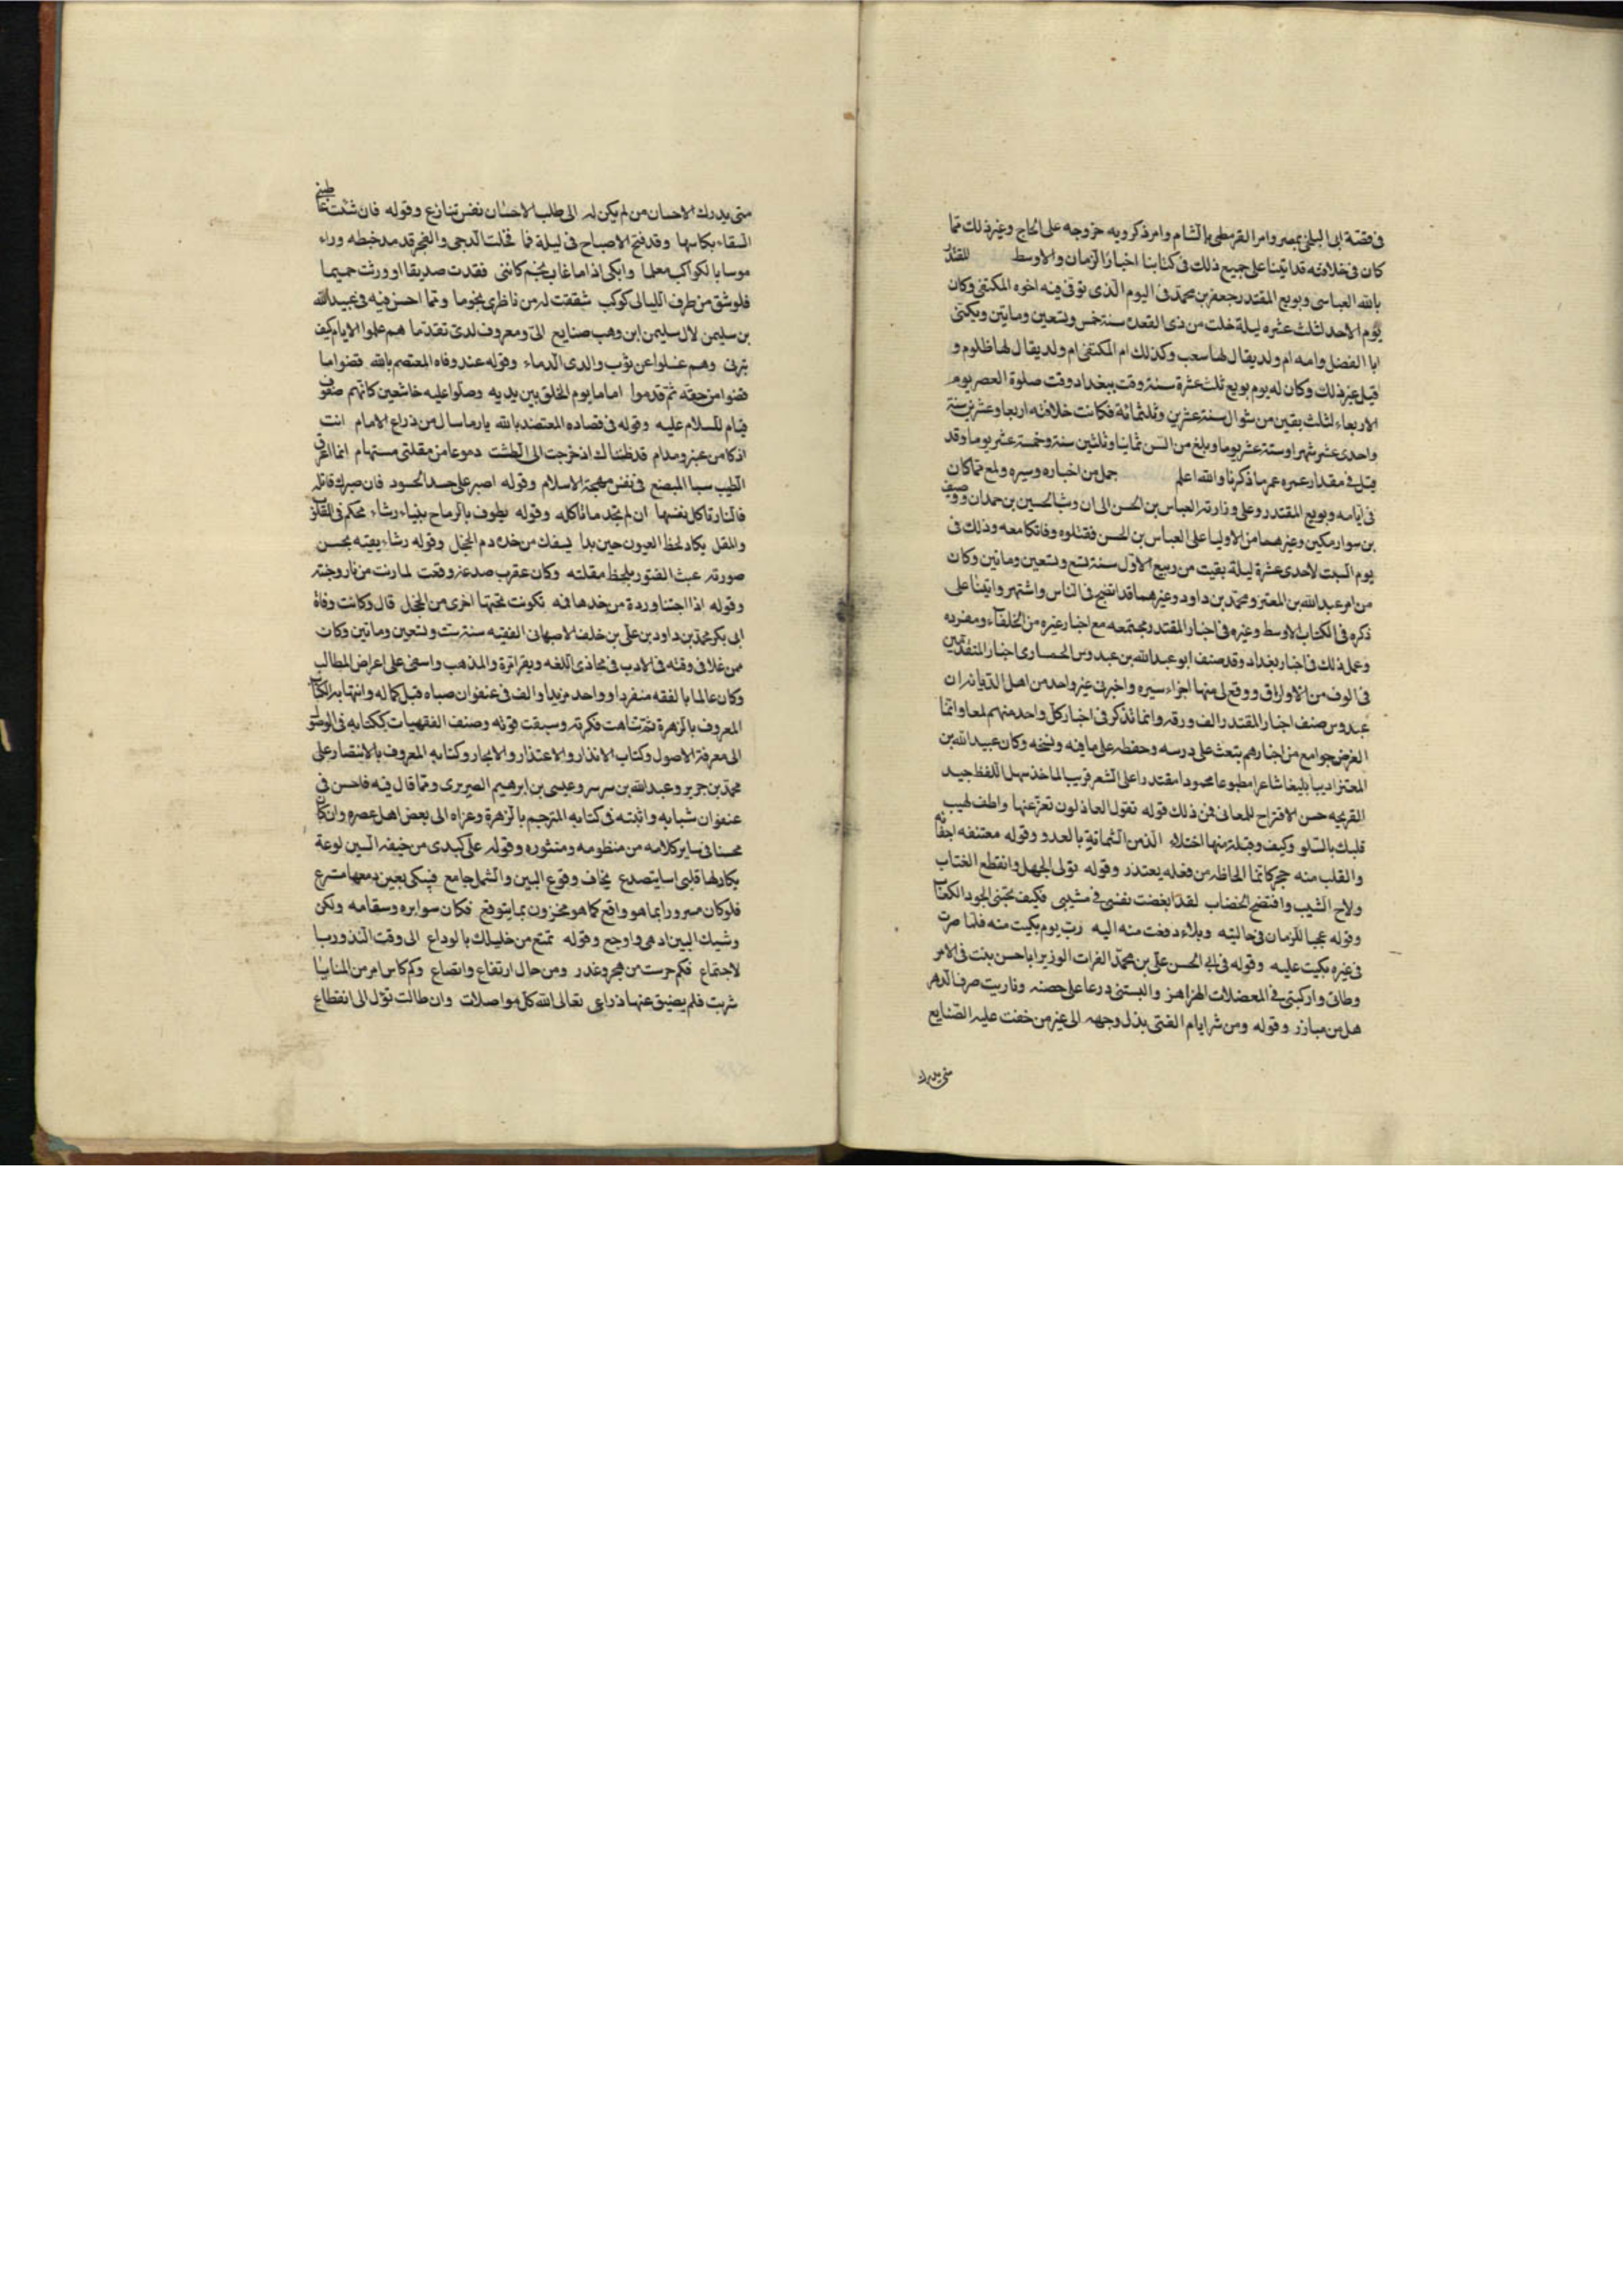 في قصة ابن البلخي بمصر وامر القرمطي بالشام وامر ذكرويه خروجه على الحاج وغير ذلك مما
كان في خلافته قد اتينا على جميع ذلك في كتابنا اخبار الزمان والاوسط المقتدر
بالله العباسي وبويع المقتدر جعفر بن محمد في اليوم الذي توفي فيه اخوه المكتفي وكان
يوم الاحد لثلث عشره ليلة خلت من ذي القعدة سنة خمس وتسعين ومايتين ويكنى
ابا الفضل وامه ام ولد يقال لها سغب وكذلك ام المكتفي ام ولد يقال لها ظلوم و
قيل غير ذلك وكان له يوم بويع ثلث عشرة سنة وقت ببغداد وقت صلوة العصر يوم
الاربعاء لثلث بقين من شوال سنة عشرين وثلثمائة فكانت خلافته اربعا وعشرين سنة
واحدى عشر شهرا وستة عشر يوما وبلغ من السن ثمانيا وثلثين سنة وخمسة عشر يوما وقد
قيل في مقدار عمره غير ما ذكرنا والله اعلم جمل من اخباره وسيره ولمع مما كان
في ايامه وبويع المقتدر وعلى وزارته العباس بن الحسن الى ان وثب الحسين بن حمدان ووصيف
بن سوار مكين وغيرهما من الاوليا على العباس بن الحسن فقتلوه وفاتكا معه وذلك في
يوم السبت لاحدى عشرة ليلة بقيت من ربيع الاول سنة تسع وتسعين ومائتين وكان
من امر عبد الله بن المعتز ومحمد بن داود وغيرهما قد اتضح في الناس واشتهر واتينا على
ذكره في الكتاب الاوسط وغيره في اخبار المقتدر مجتمعه مع اخبار غيره من الخلفاء ومفرده
وعمل ذلك في اخبار بغداد وقد صنف ابو عبد الله بن عبدوس الحصاري اخبار المتقدمين
في الوف من الاوراق ووقع لي منها اجزاء سيره واخبرني غير واحد من اهل الدرايه ان
عبدوس صنف اخبار المقتدر الف ورقه وانما نذكر في اخبار كل واحد منهم لمعا وانما
الغرض جوامع من اخبارهم يبعث على درسه وحفظه على ما فيه ونسخه وكان عبيد الله بن
المعتز اديبا بليغا شاعرا مطبوعا محمودا مقتدرا على الشعر قريب الماخذ سهل اللفظ جيد
القريحه حسن الاقتراح للمعاني فمن ذلك قوله تقول العاذلون تعز عنها واطف لهيب
قلبك بالسلو وكيف وقبلة منها اختلاء الذ من الشماتة بالعدو وقوله معتنفه اجفانه
والقلب منه حجر كانما الحاظه من فعله يعتذر وقوله تولى الجهل وانقطع العتاب
ولاح الشيب وافتضح الخضاب لقد ابغضت نفسي في مشيبي فكيف تحبني الجود الكعاب
وقوله عجبا للزمان في حالتيه وبلاء دفعت منه اليه رب يوم بكيت منه فلما صرت
في غيره بكيت عليه وقوله في ابي الحسن علي بن محمد الفرات الوزير ابا حسن بنت في الامر
وطاتي واركبتني في المعضلات الهزاهز والبستني درعا على حصنه وناريت صرف الدهر
هل من مبارز وقوله ومن شر ايام الفتى بذل وجهه الى غير من خفت عليه الصنايع
متى يدرك
متى يدرك الاحسان من لم يكن له الى طلب الاحسان نفس تنازع وقوله فان شئت عاطيني
السقاء بكاسها وقد فتح الاصباح في ليلة فما فخلت الدجى والفجر قد مد خيطه وراء
موسا بالكواكب معلما وابكى اذا ما غاب نجم كانني فقدت صديقا او ورثت حميما
فلو شق من طرف الليالي كوكب شققت له من ناظري نجوما ومما احسن فيه في عبيد الله
بن سليمن لال سليمن ابن وهب صنايع الي ومعروف لدي تقدما هم علموا الايام كيف
تبرني وهم غسلوا عن ثوب والدي الدماء وقوله عند وفاه المعتصم بالله قضوا ما
قضوا من حقه ثم قدموا اماما يوم الخلق بين يديه وصلوا عليه خاشعين كانهم صفوف
قيام للسلام عليه وقوله في فصاده المعتضد بالله يا رما سال من ذراع الامام انت
اذكا من عنبر ومدام قد ظنناك اذ خرجت الى الطشت دموعا من مقلتي مستهام انما اغرق
الطيب سبا المبضع في نفس مهجة الاسلام وقوله اصبر على حسد الحسود فان صبرك قاتله
فالنار تاكل نفسها ان لم تجد ما تاكله وقوله يطوف بالرماح بنياء رشاء محكم في القلوب
والمقل يكاد لحظ العيون حين بدا يسفك من خده دم الخجل وقوله رشاء يقيه بحسن
صورته عبث الفتور بلحظ مقلته وكان عقرب صدغه وقفت لما دنت من نار وجنته
وقوله اذا اجتنا وردة من خدها فمه تكونت تحتها اخرى من الخجل قال وكانت وفاة
ابي بكر محمد بن داود بن علي بن خلف الاصبهاني الفقيه سنة ست وتسعين ومائتين وكان
ممن علا في وقته في الادب في محاذي اللغه وبقراترة والمذهب واستغنى على اعراض المطالب
وكان عالما بالفقه منفردا وواحد مزيدا والف في عنفوان صباه قبل كماله وانتهايه الكتاب
المعروف بالزهرة ثم تناهت فكرته وسبقت قوته وصنف الفقهيات ككتابه في الوصول
الى معرفة الاصول وكتاب الانذار والاعتذار والايجار وكتابه المعروف بالانتصار على
محمد بن جرير وعبد الله بن سرسر وعيسى بن ابرهيم الضريري ومما قال فيه فاحسن في
عنفوان شبابه واثبته في كتابه المترجم بالزهرة وعزاه الى بعض اهل عصره وان كان
محسنا في ساير كلامه من منظومه ومنثوره وقوله على كبدي من خيفه البين لوعة
يكاد لها قلبي اسا يتصدع يخاف وقوع البين والشمل جامع فيبكي بعين دمعها متسرع
فلو كان مسرورا بما هو واقع كما هو محزون بما يتوقع فكان سوا بره وسقامه ولكن
وشيك البين ادهى واوجع وقوله تمتع من خليلك بالوداع الى وقت
لاجتماع فكم جرست من هجر وغدر ومن حال ارتفاع واتضاع وكم كاس امر من المنايا
شربت فلم يضيق عنها ذراعي تعالى الله كل مواصلات وان طالت تؤل الى انقطاع